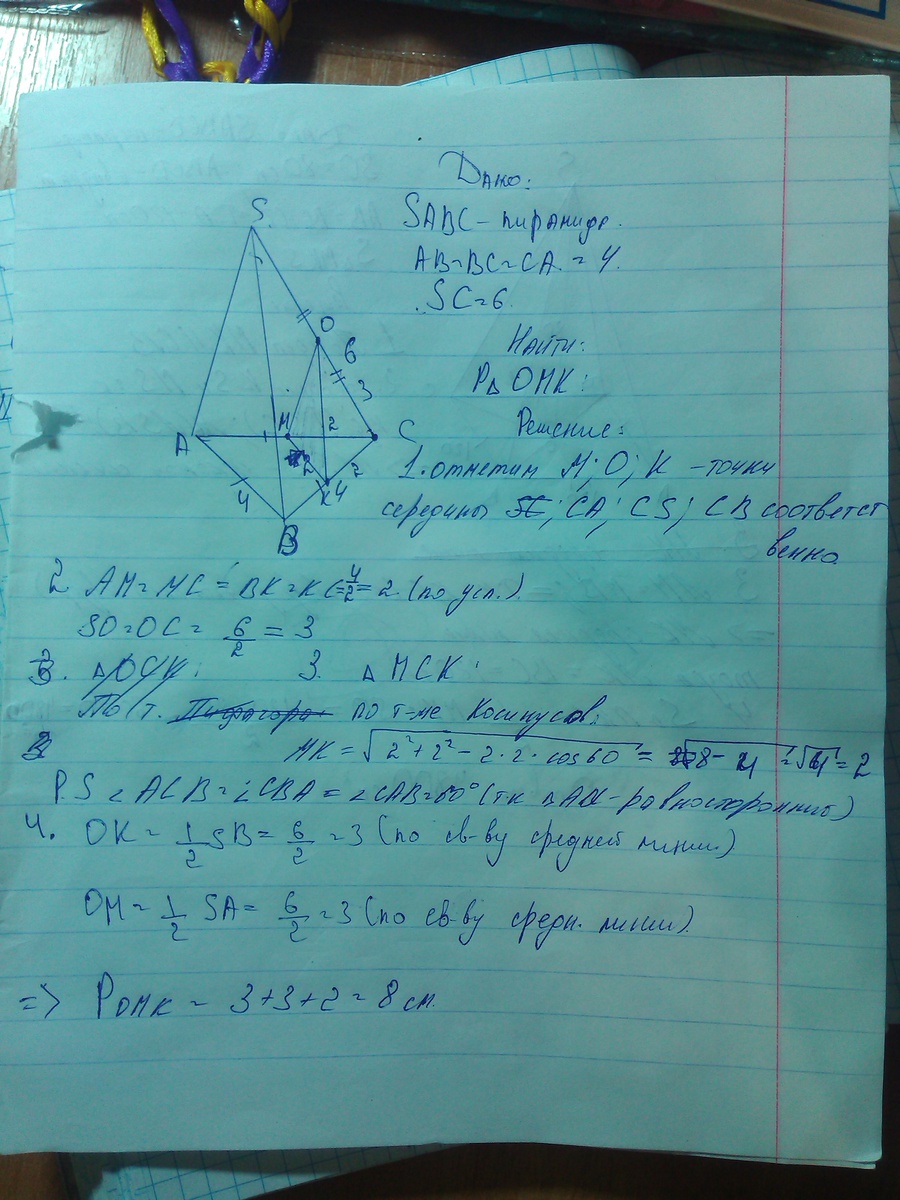 Дано:
SABC - пирамида.
AB=BC=CA = 4.
SC=6.
Найти:
P△ OMK:
Решение:
1. отметим M; O; K - точки
середины CA; CS; CB соответст
венно
2. AM=MC = BK=KC=4/2=2. (по усл.)
SO=OC= 6/2 = 3
3. △ MCK:
по т-ме Косинусов:
MK = √2²+2²-2·2·cos60 = √8-4 = √4 = 2
P.S ∠ACB=∠CBA=∠CAB=60° (тк △ABC - равносторонний)
4. OK = 1/2 SB = 6/2 = 3 (по св-ву средней линии)
OM = 1/2 SA = 6/2 = 3 (по св-ву средн. линии).
=> POMK = 3+3+2=8 см.
S
O
6
3
A
M
2
C
2
2
K
4
4
B